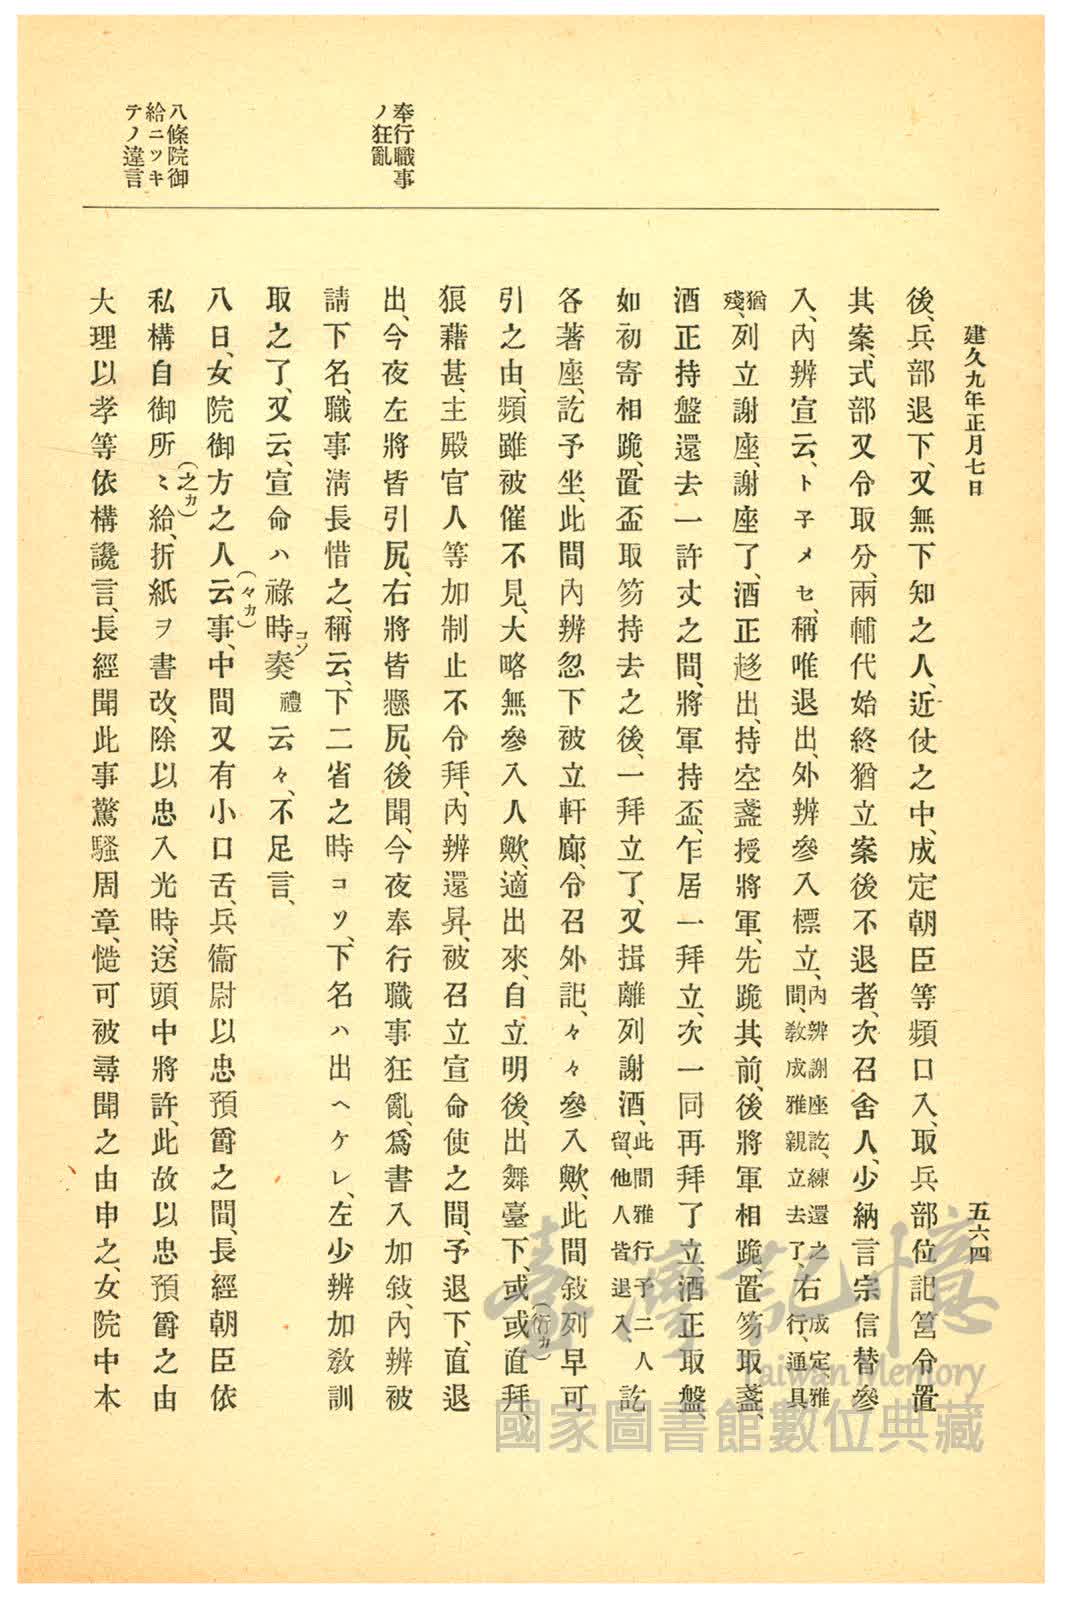 建久九年正月七日
五六四
奉行職事
ノ狂亂
八條院御
給ニツキ
テノ違言
後、兵部退下、又無下知之人、近仗之中、成定朝臣等頻口入、取兵部位記筥令置
其案、式部又令取分、兩輔代始終猶立案後不退者、次召舍人、少納言宗信替參
入、內辨宣云、ト子メセ、稱唯退出、外辨參入標立、內辨謝座訖、練還之間、敎成雅親立去了、右成定雅行、通具
猶殘、列立謝座、謝座了、酒正趍出、持空盞授將軍、先跪其前、後將軍相跪、置笏取盞、
酒正持盤還去一許丈之間、將軍持盃、乍居一拜立、次一同再拜了立、酒正取盤、
如初寄相跪、置盃取笏持去之後、一拜立了、又揖離列謝酒、此間雅行予二人留、他人皆退入、訖
各著座、訖予坐、此間內辨忽下被立軒廊、令召外記、々々參入歟、此間敍列早可
引之由、頻雖被催不見、大略無參入人歟、適出來、自立明後、出舞臺下、或或(衍カ)直拜、
狼藉甚、主殿官人等加制止不令拜、內辨還昇、被召立宣命使之間、予退下、直退
出、今夜左將皆引尻、右將皆懸尻、後聞、今夜奉行職事狂亂、爲書入加敍、內辨被
請下名、職事淸長惜之、稱云、下二省之時コソ、下名ハ出ヘケレ、左少辨加敎訓
取之了、又云、宣命ハ祿時コソ奏禮云々、不足言、
八日、女院御方之人云(々カ)事、中間又有小口舌、兵衞尉以忠預爵之間、長經朝臣依
私構自御所〻(之カ)給、折紙ヲ書改、除以忠入光時、送頭中將許、此故以忠預爵之由
大理以孝等依構讒言、長經聞此事驚騷周章、慥可被尋聞之由申之、女院中本
臺灣記憶
Taiwan Memory
國家圖書館數位典藏